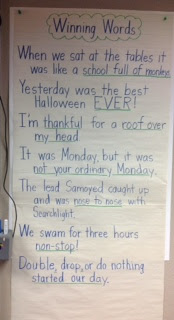 Winning Words
When we sat at the tables it
was like a school full of monkeys.
Yesterday was the best
Halloween EVER!
I'm thankful for a roof over
my head
It was Monday, but it was
not your ordinary Monday.
The lead Samoyed caught up
and was nose to nose with
Searchlight.
We swam for three hours
non-stop!
Double, drop, or do nothing
started our day.